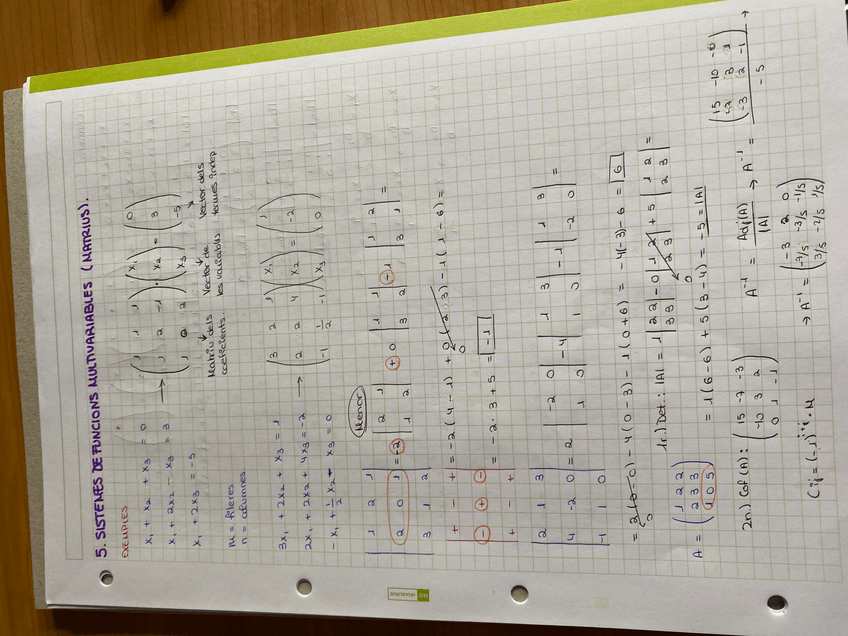 5. SISTEMES DE FUNCIONS MULTIVARIABLES (MATRIUS).
EXEMPLES
x₁ + x₂ + x₃ = 0
x₁ + 2x₂ - x₃ = 3
x₁ + 2x₃ = -5
→ (1 1 1 / 1 2 -1 / 1 0 2) · (x₁ / x₂ / x₃) = (0 / 3 / -5)
Matriu dels coeficients. Vector de les variables Vector dels termes indep
m = fileres
n = columnes
3x₁ + 2x₂ + x₃ = 1
2x₁ + 2x₂ + 4x₃ = -2
-x₁ + 1/2 x₂ - x₃ = 0
→ (3 2 1 / 2 2 4 / -1 1/2 -1) (x₁ / x₂ / x₃) = (1 / -2 / 0)
Menor
|1 2 1 / 2 0 1 / 3 1 2| = -2 |2 1 / 1 2| + 0 |1 1 / 3 2| - 1 |1 2 / 3 1| =
+ - +
- + -
+ - +
= -2 (4 - 1) + 0 (2 - 3) - 1 (1 - 6) =
= -2 · 3 + 5 = -1
|2 1 3 / 4 -2 0 / -1 1 0| = 2 |-2 0 / 1 0| - 4 |1 3 / 1 0| - 1 |1 3 / -2 0| =
= 2 (0 - 0) - 4 (0 - 3) - 1 (0 + 6) = -4(-3) - 6 = 6
A = (1 2 2 / 2 3 3 / 1 0 5)
1r.) Det: |A| = 1 |2 2 / 3 3| - 0 |1 2 / 2 3| + 5 |1 2 / 2 3| =
= 1 (6 - 6) + 5 (3 - 4) = -5 = |A|
2n.) Cof (A): (15 -7 -3 / -10 3 2 / 0 1 -1)
A⁻¹ = Adj(A) / |A| → A⁻¹ = (15 -10 -0 / -2 3 1 / -3 2 -1) / -5 →
→ A⁻¹ = (-3 2 0 / -7/5 -3/5 -1/5 / 3/5 -2/5 1/5)
Cij = (-1)^i+j · M